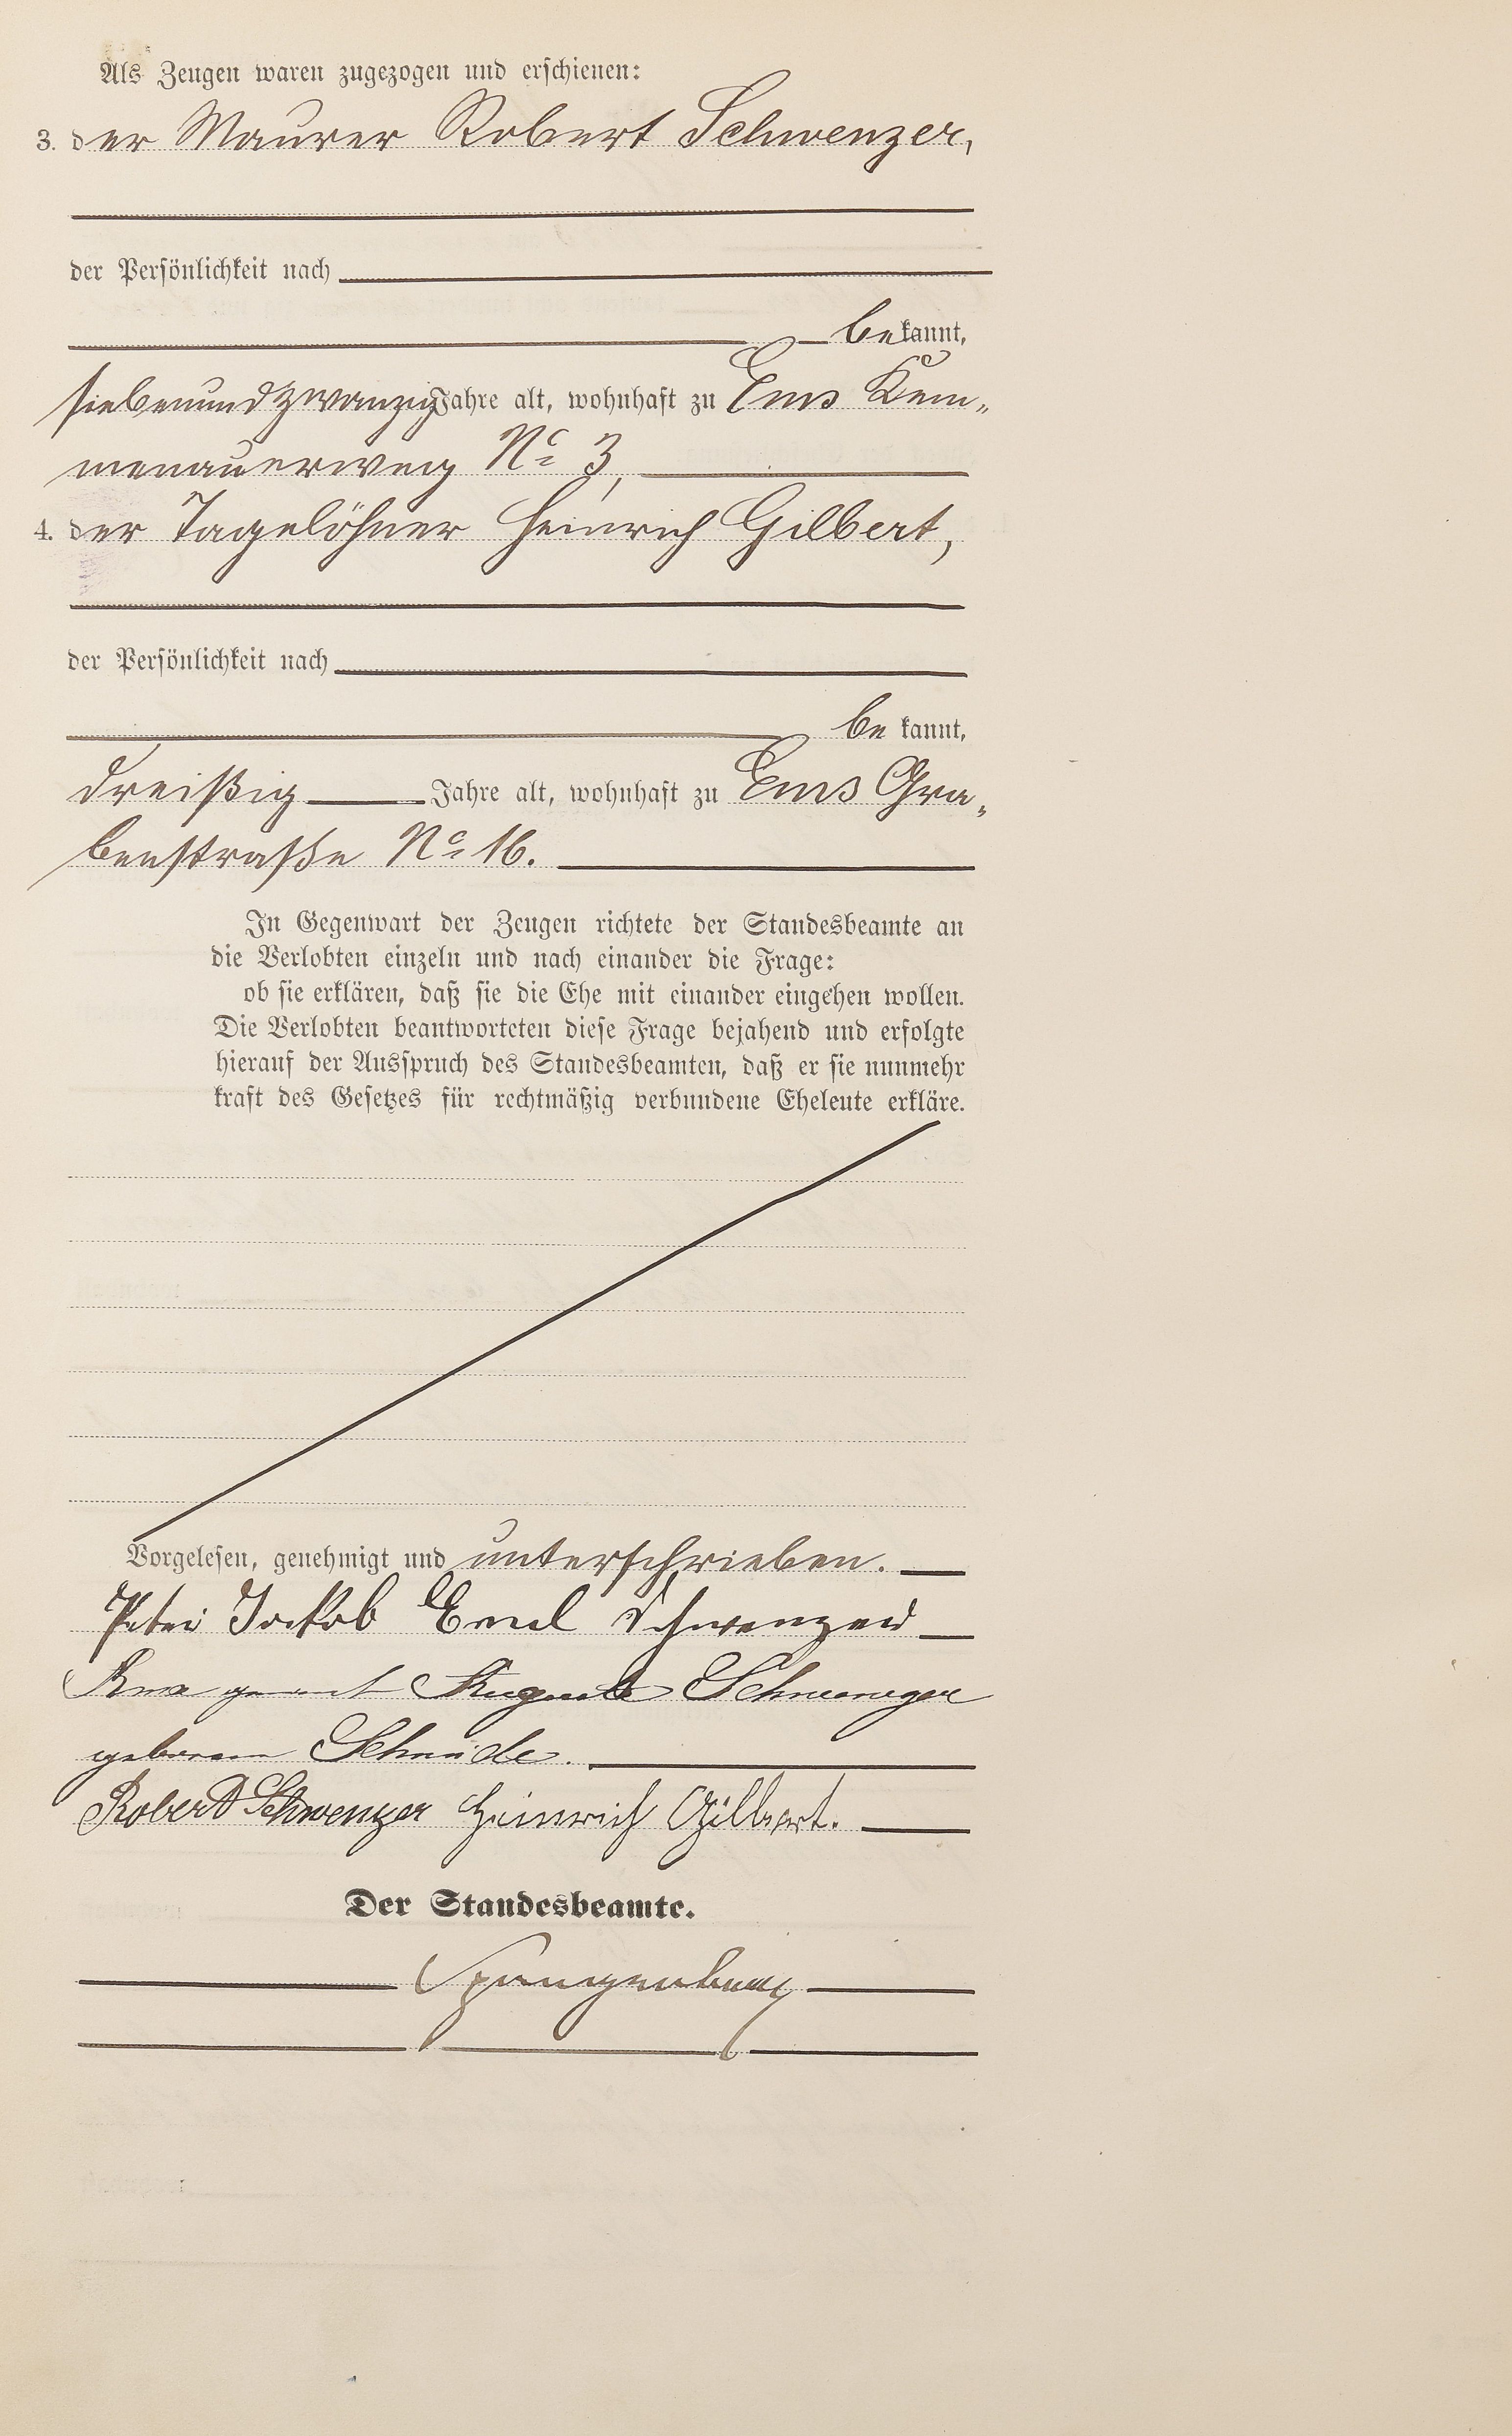 Als Zeugen waren zugezogen und erschienen:
3. der Maurer Robert Schwenzer,
der Persönlichkeit nach
bekannt,
siebenundzwanzig Jahre alt, wohnhaft zu Ems Kem„
menauerweg No 3,
4. der Tagelöhner Heinrich Gilbert,
der Persönlichkeit nach
be kannt,
dreißig Jahre alt, wohnhaft zu Ems Gra„
benstraße No 16.
In Gegenwart der Zeugen richtete der Standesbeamte an
die Verlobten einzeln und nach einander die Frage:
ob sie erklären, daß sie die Ehe mit einander eingehen wollen.
Die Verlobten beantworteten diese Frage bejahend und erfolgte
hierauf der Ausspruch des Standesbeamten, daß er sie nunmehr
kraft des Gesetzes für rechtmäßig verbundene Eheleute erkläre.
Vorgelesen, genehmigt und unterschrieben.
Peter Jakob Emil Schwenzer
genannt Auguste Schwenzer
geborene
Robert Schwenzer Heinrich Gilbert.
Der Standesbeamte.
Spangenberg